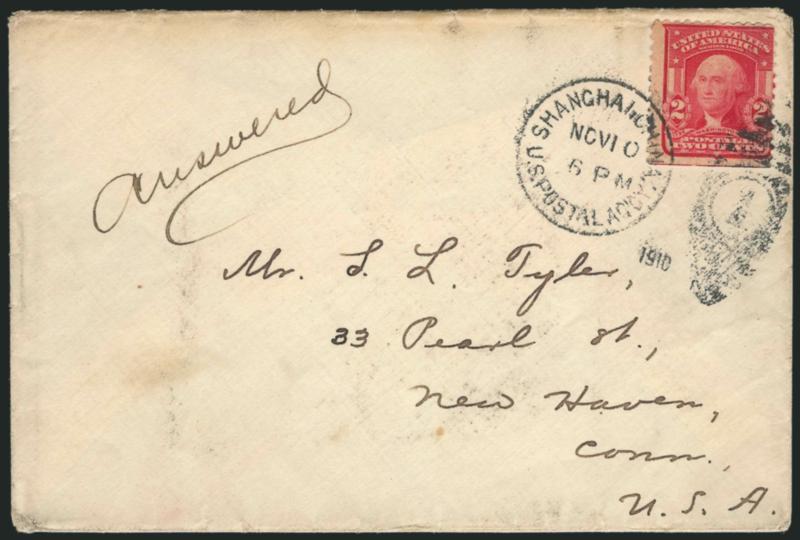 answered
UNITED STATES
OF AMERICA
2 2
POSTAGE
TWO CENTS
SHANGHAI, CHINA
NOV 10
6 PM
U.S. POSTAL AGCY.
1910
Mr. S. L. Tyler,
33 Pearl St.,
New Haven,
Conn.,
U. S. A.